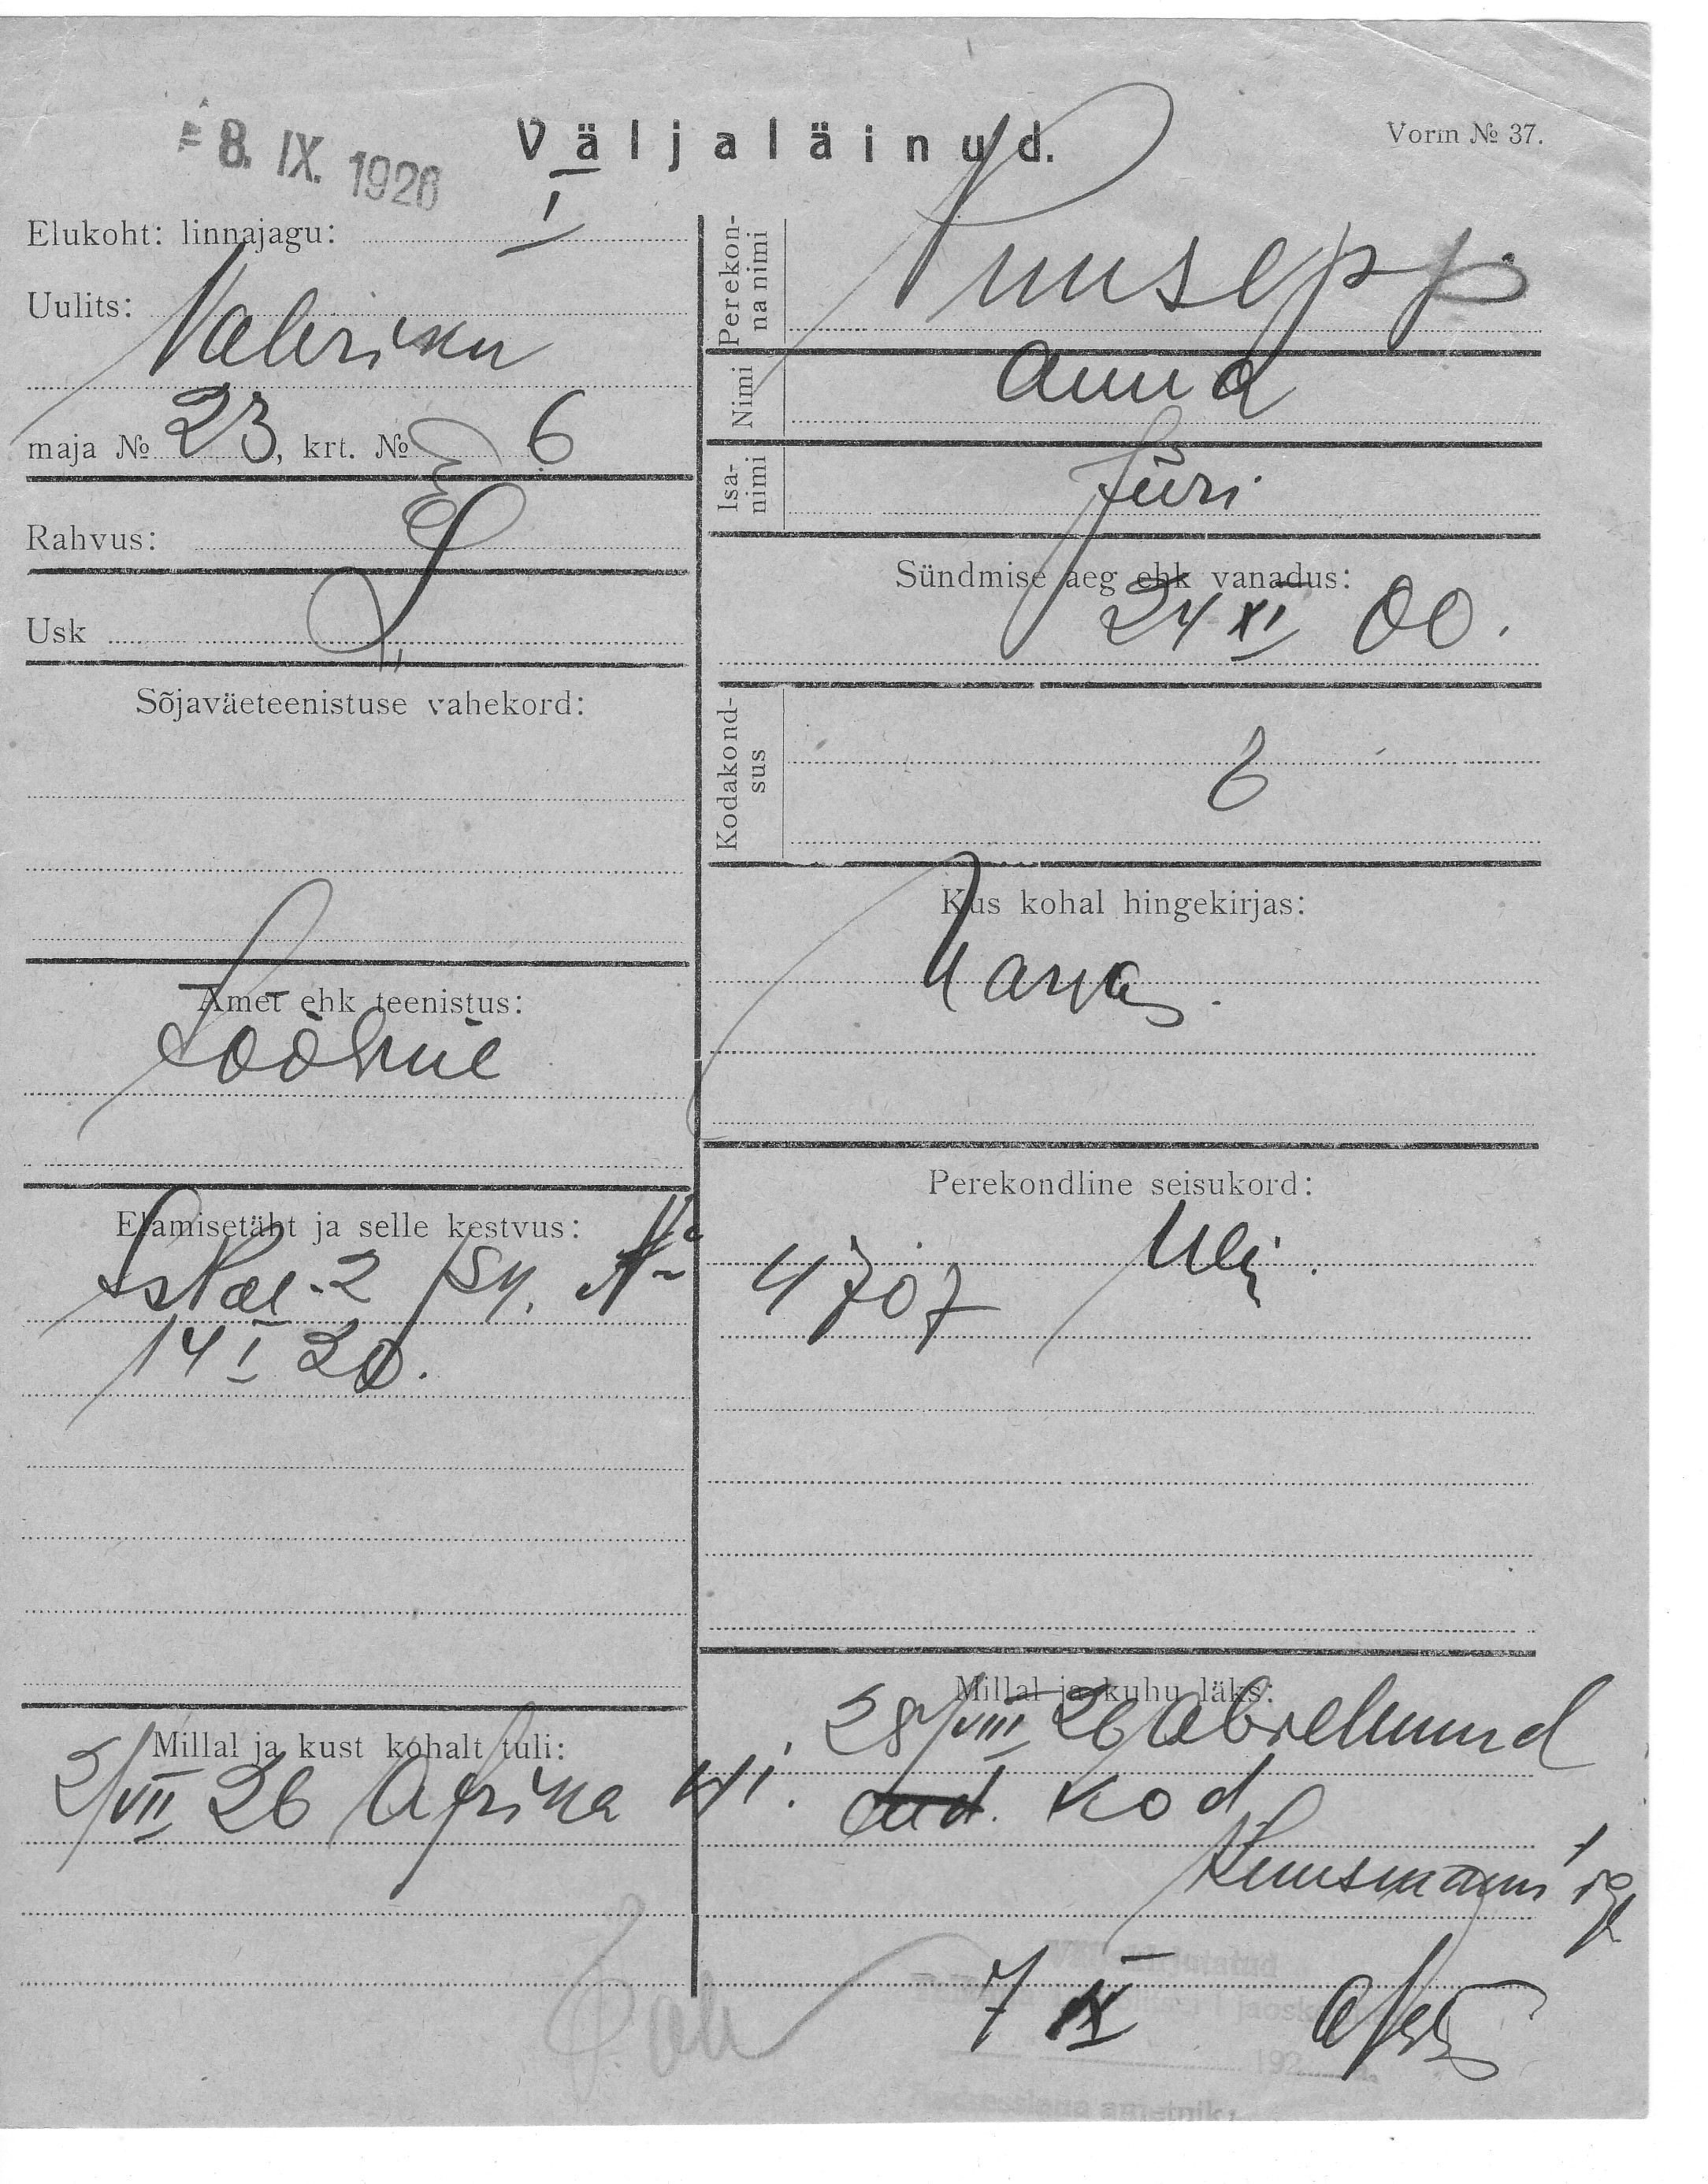 - 8. IX. 1926
Väljaläinud.
Vorm № 37.
Elukoht: linnajagu: I
Uulits: Vabriku
maja № 23, krt. № 6
Rahvus: E
Usk L
Sõjaväeteenistuse vahekord:
Amet ehk teenistus:
Tööline
Elamisetäht ja selle kestvus:
Isk. 2 jsk. № 4707
14 I 20.
Millal ja kust kohalt tuli:
2/VII 26
Perekonna nimi
Puusepp
Nimi
Anna
Isanimi
Jüri
Sündmise aeg ehk vanadus:
24 XI 00.
Kodakondsus
E
Kus kohal hingekirjas:
Narva.
Perekondline seisukord:
Millal ja kuhu läks:
28/VIII 26
kod
7 IX
Välja kirjutatud
jaosk.
192
ametnik: